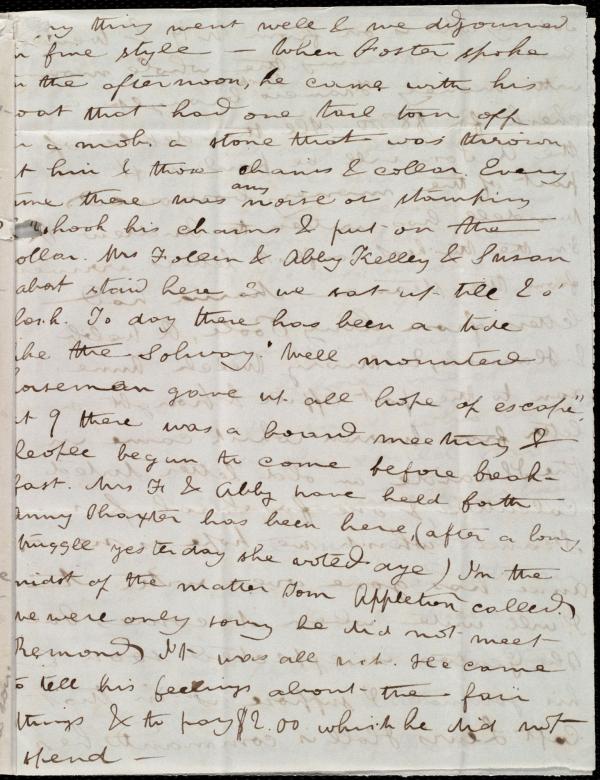 ny thing went well & we adjourned
n fine style — When Foster spoke
n the afternoon, he came with his
oat that had one tail torn off
n a mob. a stone that was thrown
t him & those chains & collar. Every
me there was any noise or stamping
shook his chains & put on the
ollar. Mrs Follen & Abby Kelley & Susan
abot staid here & we sat up till 2 o'
lock. To day there has been a tide
ike the Solway. "Well mounted
orseman gave up all hope of escape".
t 9 there was a board meeting &
people begun to come before break-
fast. Mrs F. & Abby have held forth
anny Thaxter has been here, (after a long
truggle yesterday she voted aye) In the
midst of the matter Tom Appleton called,
we were only sorry he did not meet
Remond, It was all right. He came
o tell his feelings about the fair
things & to pay $2.00 which he did not
spend —